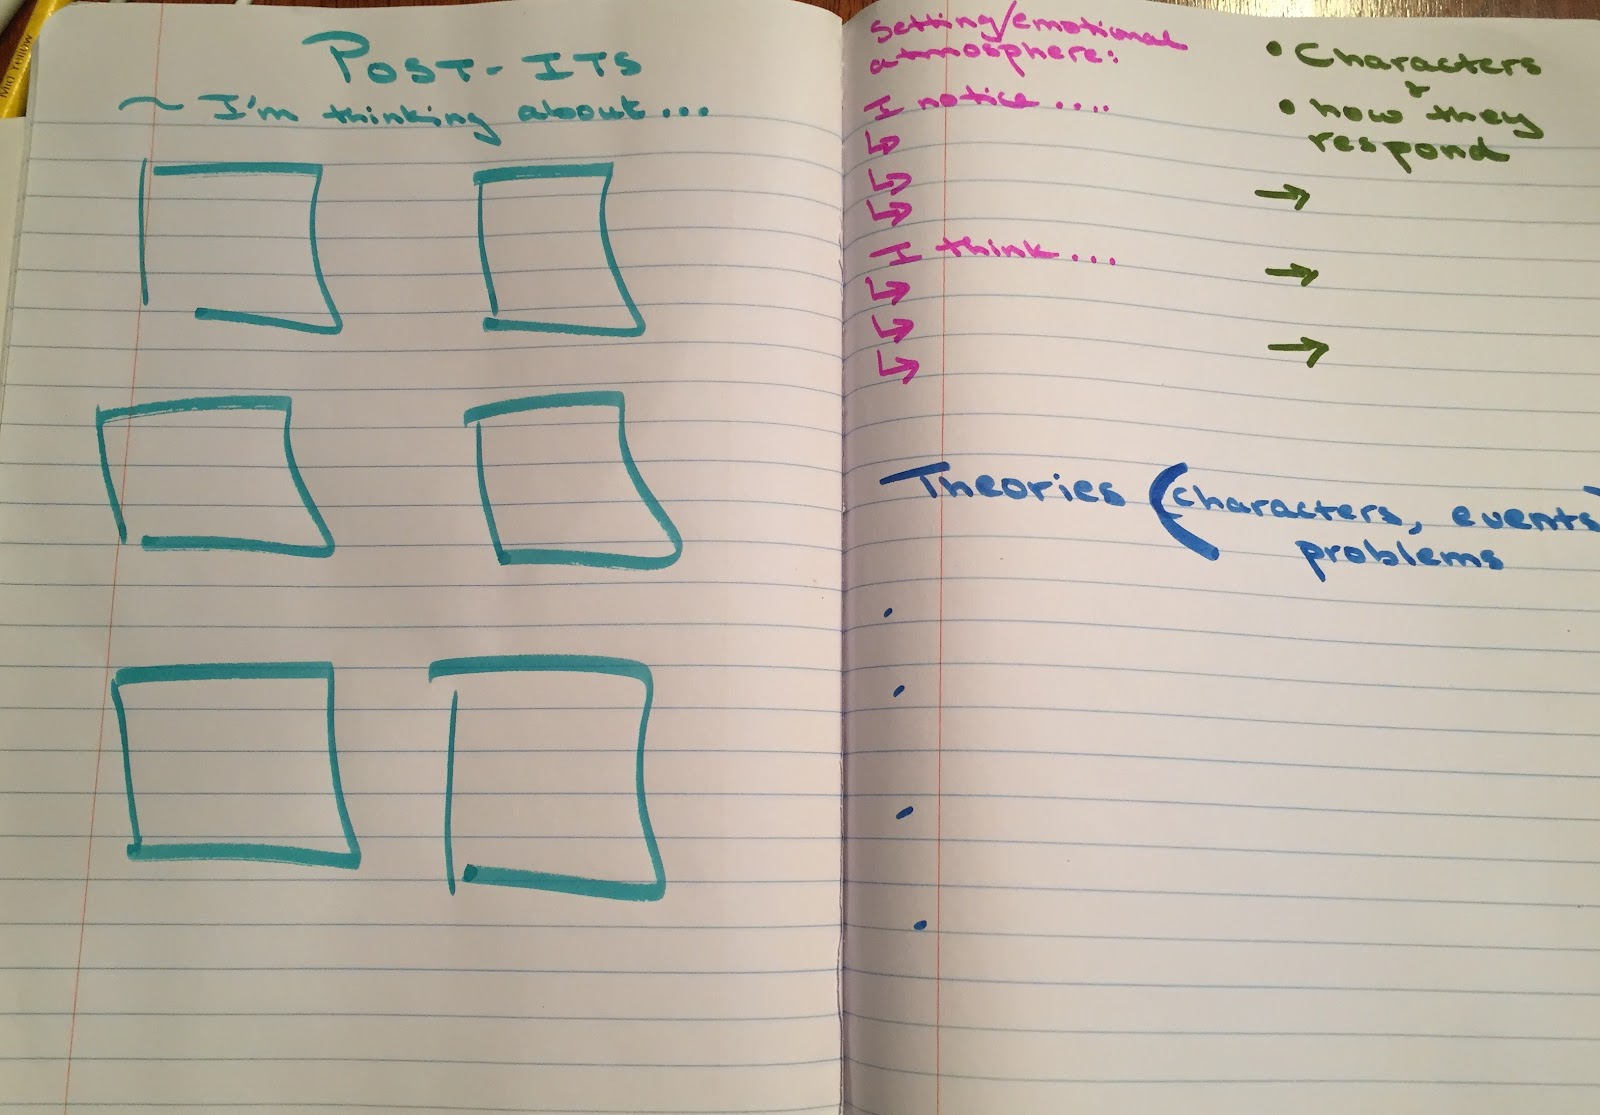 Post-Its
~ I'm thinking about...
Setting/emotional
atmosphere:
I notice....
I think...
• Characters
+
• how they
respond
Theories (characters, events
problems